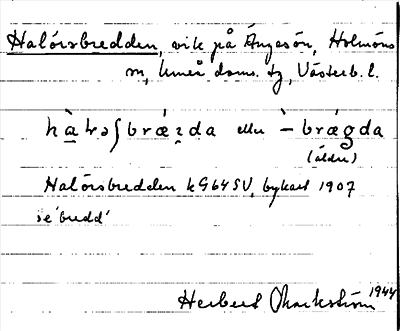 Halörsbredden, vik på Ängesön, Holmöns
sn, Umeå doms. tg, Västerb. l.
brǽgda
(äldre)
Halörsbredden k G 64 SV, bykart 1907
se 'bredd'
Herbert Markström 1944